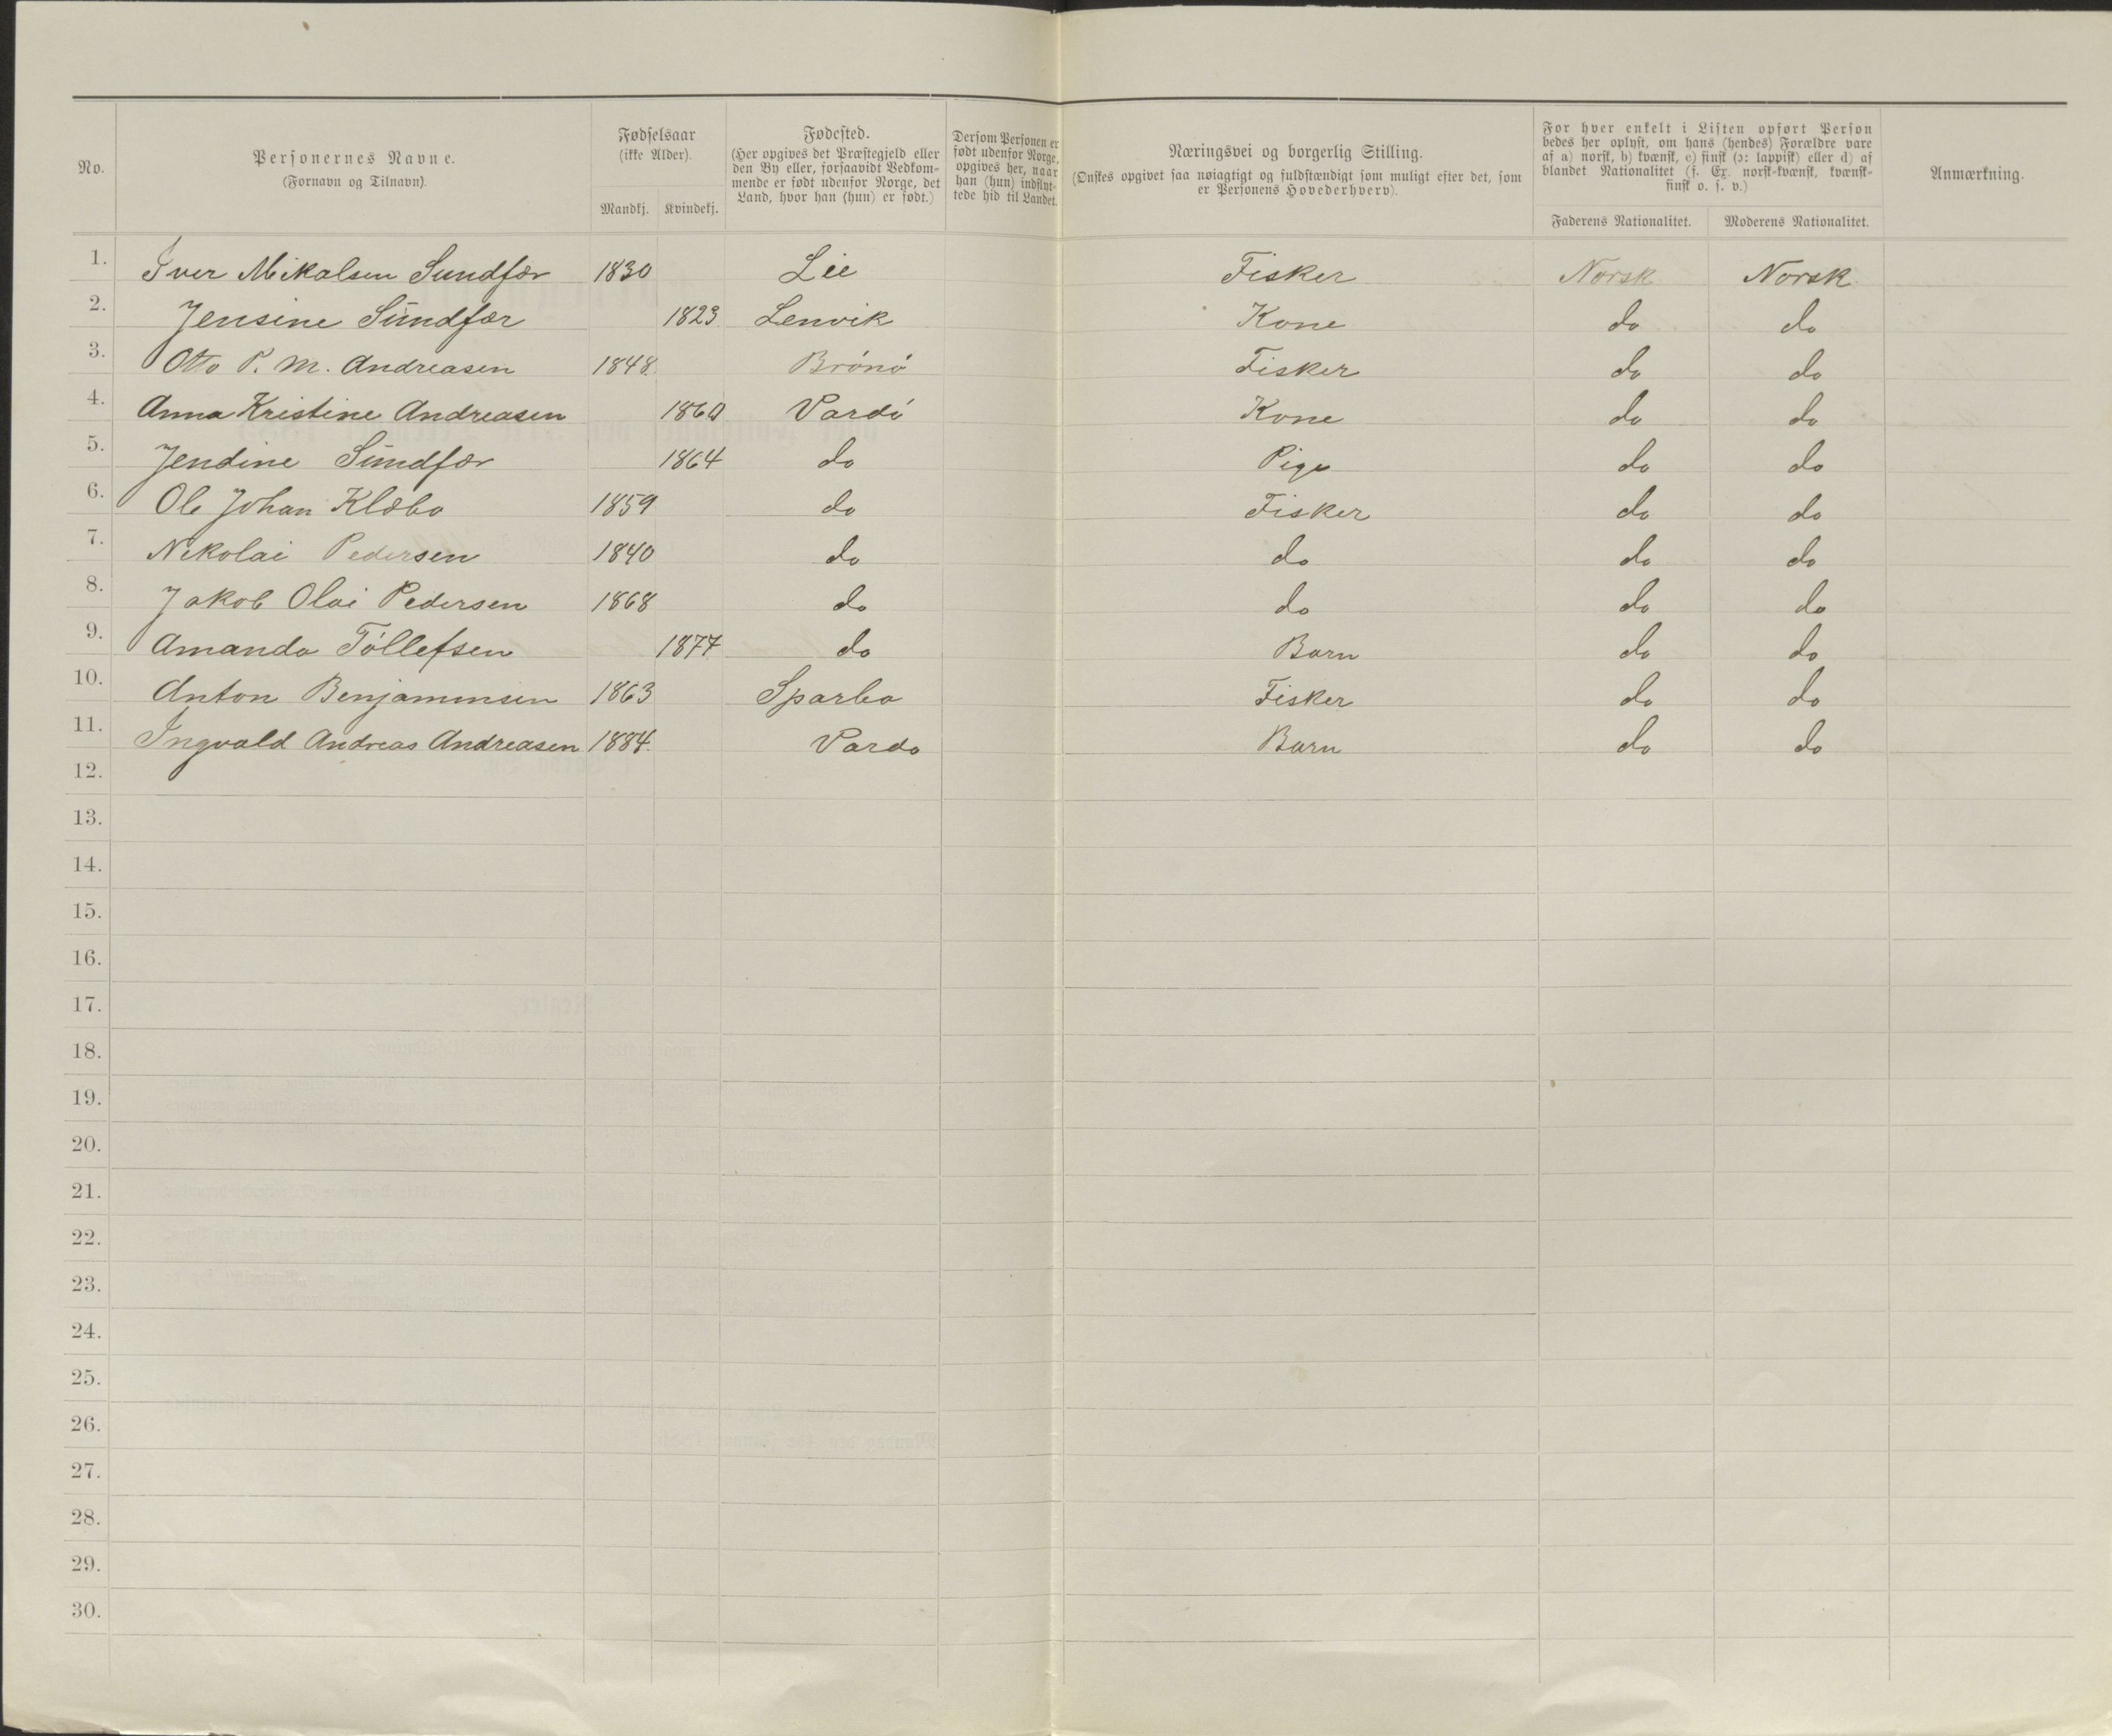 No.
Personernes Navne.
(Fornavn og Tilnavn).
Fødselsaar
(ikke Alder).
Mandkj. Kvindekj.
Fødested.
(Her opgives det Præstegjeld eller
den By eller, forsaavidt Vedkom-
mende er født udenfor Norge, det
Land, hvor han (hun) er født.)
Dersom Personen er
født udenfor Norge,
opgives her, naar
han (hun) indflyt-
tede hid til Landet.
Næringsvei og borgerlig Stilling.
(Ønskes opgivet saa nøiagtigt og fuldstændigt som muligt efter det, som
er Personens Hovederhverv).
For hver enkelt i Listen opført Person
bedes her oplyst, om hans (hendes) Forældre vare
af a) norsk, b) kvænsk, c) finsk (ɔ: lappisk) eller d) af
blandet Nationalitet (f. Ex. norsk-kvænsk, kvænsk-
finsk o. s. v.)
Faderens Nationalitet. Moderens Nationalitet.
Anmærkning.
1. Iver Mikalsen Sundfær 1830 Lie Fisker Norsk Norsk
2. Jensine Sundfær 1823 Lenvik Kone do do
3. Otto P. M. Andreasen 1848. Brónó Fisker do do
4. Anna Kristine Andreasen 1860 Vardó Kone do do
5. Jendine Sundfær 1864 do Pige do do
6. Ole Johan Klæbo 1859 do Fisker do do
7. Nikolai Pedersen 1840 do do do do
8. Jakob Olai Pedersen 1868 do do do do
9. Amanda Tóllefsen 1877 do Barn do do
10. Anton Benjaminsen 1863 Sparbo Fisker do do
11. Ingvald Andreas Andreasen 1884. Vardo Barn do do
12.
13.
14.
15.
16.
17.
18.
19.
20.
21.
22.
23.
24.
25.
26.
27.
28.
29.
30.